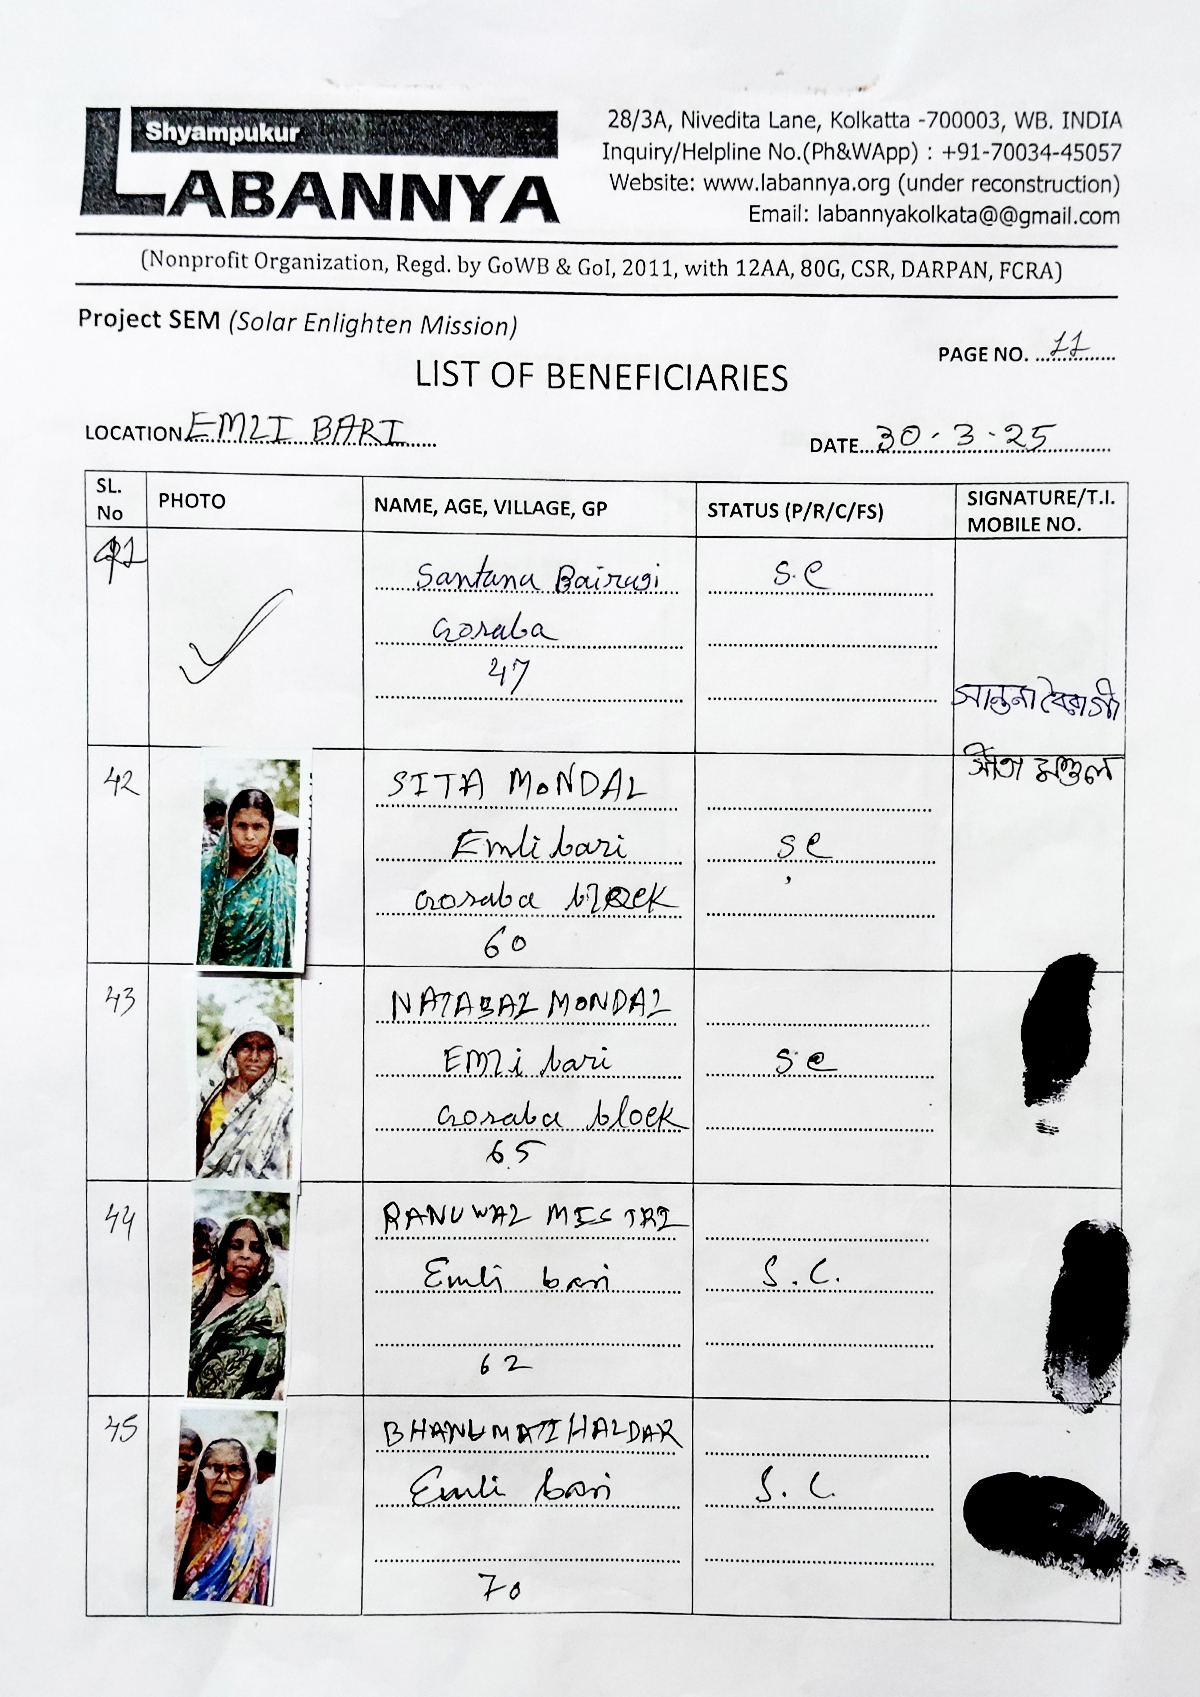 Shyampukur
LABANNYA
28/3A, Nivedita Lane, Kolkatta -700003, WB. INDIA
Inquiry/Helpline No.(Ph&WApp) : +91-70034-45057
Website: www.labannya.org (under reconstruction)
Email: labannyakolkata@@gmail.com
(Nonprofit Organization, Regd. by GoWB & GoI, 2011, with 12AA, 80G, CSR, DARPAN, FCRA)
Project SEM (Solar Enlighten Mission)
PAGE NO. 11
LIST OF BENEFICIARIES
LOCATION EMLI BARI
DATE 30.3.25
SL. No PHOTO NAME, AGE, VILLAGE, GP STATUS (P/R/C/FS) SIGNATURE/T.I. MOBILE NO.
41 Santana Bairagi S.C
Gosaba
47
সান্তনা বৈরাগী
42 SITA MONDAL সীতা মণ্ডল
Emli bari SC
Gosaba block
60
43 NATABAL MONDAL
EMli bari SC
Gosaba block
65
44 RANUWAL MISTRI
Emli bari S.C.
62
45 BHANUMATI HALDAR
Emli bari S.C.
70